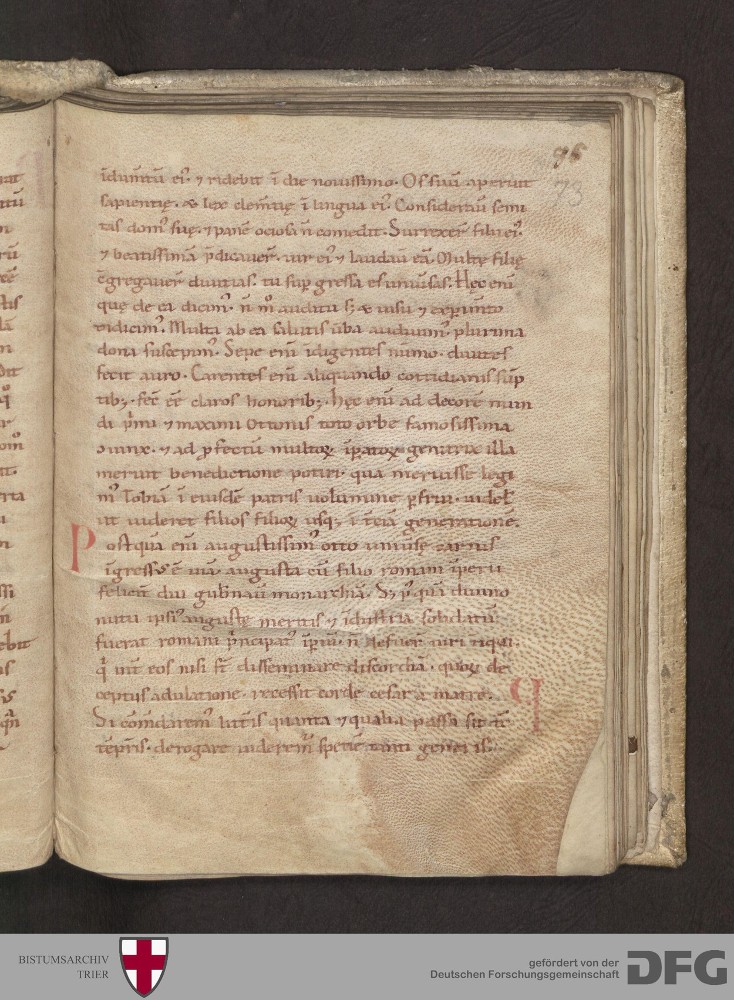 95
73
īdum̄tū ei᷒. ⁊ ridebit ī die nouissimo. Os suū aperuit
sapientię. & lex clem̄tię ī lingua ei᷒. Consideraū semi
tas dom᷒ suę. ⁊ panē ociosa n̄ comedit. Surrexer̄ filii ei᷒.
⁊ beatissimā p̄dicauer̄. uir ei᷒ ⁊ laudaū eā. Multę filię
c̄gregauer̄ diuitias. tu sup gressa es uniu͛sas. Hęc eni
quę de ea dicim᷒. n̄ m̊ auditu s; & uisu ⁊ exꝑim̄to
didicim᷒. Multa ab ea salutis u͛ba audiuim᷒. plurima
dona suscepim᷒. Sepe eni īdigentes nūmo. dantes
fecit auro. Carentes eni aliquando cottidianis sūp
tib;. fec̄ eē claros honorib;. hęc eni ad decorē mun
di p͛mi ⁊ maximi Ottonis toto orbe famosissima
⁊ ad ꝑfectū multoꝝ īꝑatoꝝ genitrix illa
meruit benedictione potiri. qua meruisse legi
m᷒ Tobiā ī eiusdē patris uolumine ꝑfrui. uidel̄
ut uideret filios filioꝝ usq; ī tciā generationē.
Postquā eni augustissim᷒ otto uniu͛sę carnis
īgressus ē uiā. augusta cū filio romani īperii
felicit͛ diu gub͛nauit monarchiā. S; p᷒quā diuino
nutu ipsi᷒ augustę meritis ⁊ īdustria solidatū
fuerat romani p͛ncipat᷒ īꝑiū. n̄ defuer̄ uiri iniqui.
q͛ int͛ eos nisi st̄ disseminare discordiā. quoꝝ de
ceptus adulatione. recessit corde cesar a matre.
Si cōmdarem᷒ litt͛is quanta ⁊ qualia passa sit tē
tēp͛is. derogare uiderem᷒ speciē tanti generis.
BISTUMSARCHIV
TRIER
gefördert von der
Deutschen Forschungsgemeinschaft
DFG